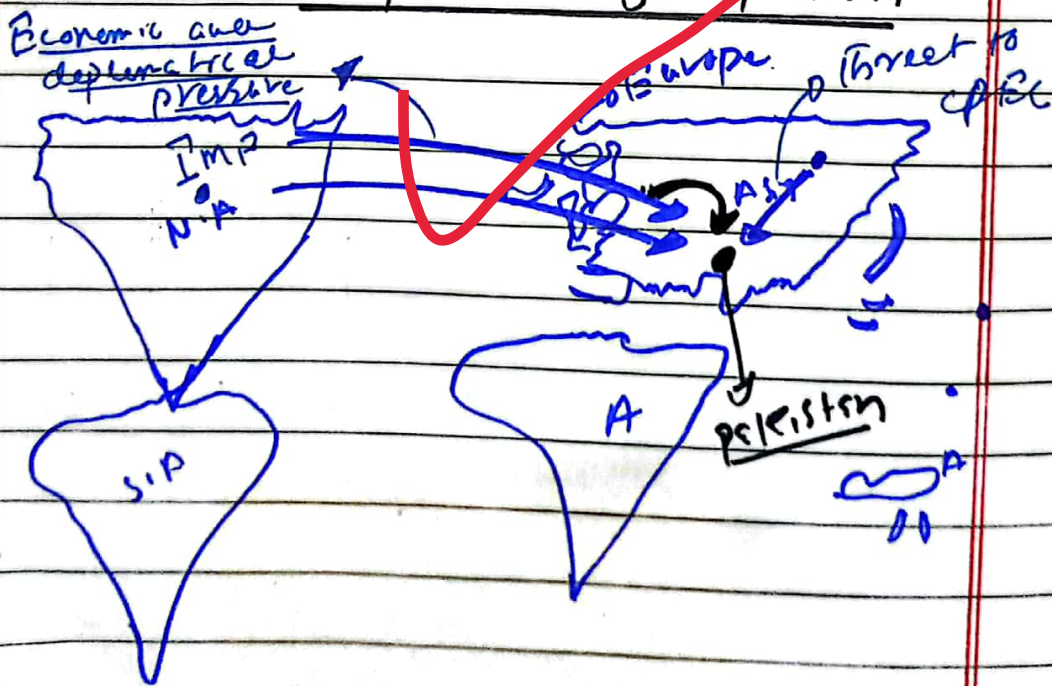 Economic and
deplomatical
pressure
Europe
Threet to
CPEC
IMF
N.A
Asia
A
pakistan
S.A
A